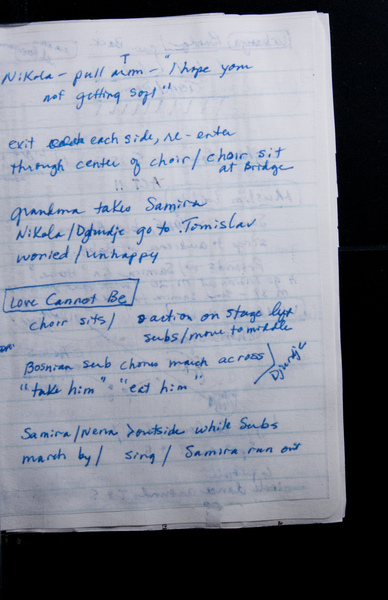 T
Nikola - pull arm - "I hope you
not getting soft"
exit each side, re-enter
through center of choir / choir sit
at Bridge
grandma takes Samira
Nikola / Djurdje go to Tomislav
worried / unhappy
Love Cannot Be
choir sits / action on stage left
subs / move to middle
Bosnian sub chorus march across
"take him" "eat him"
Djurdje
Samira / Nena > outside while Subs
march by / sing / Samira run out